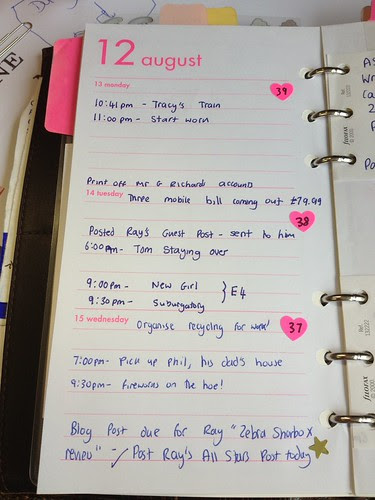 12 august
13 monday
39
10:41pm - Tracy's Train
11:00pm - Start work
Print off Mr G Richards accounts
14 tuesday
Three mobile bill coming out £79.99
38
Posted Ray's Guest Post - sent to him
6:00pm - Tom Staying over
9:00pm - New Girl
9:30pm - Suburgatory } E4
15 wednesday
Organise recycling for work!
37
7:00pm - Pick up Phil, his dads house
9:30pm - fireworks on the hoe!
Blog Post due for Ray "Zebra Sharbo X
review" - Post Ray's All Stars Post today